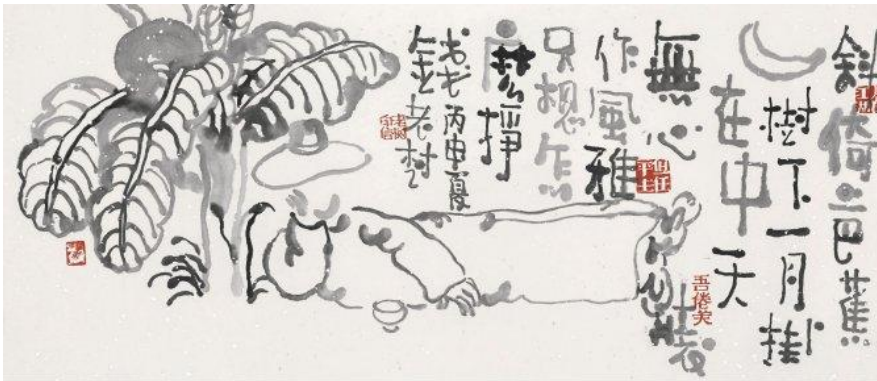 斜倚芭蕉
樹下一月掛
在中天
無心
作風雅
只想怎
麼掙
錢
丙申夏
老樹
吾倦矣